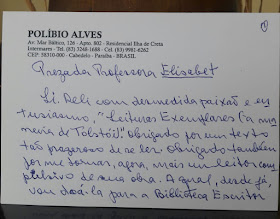 POLÍBIO ALVES
Av. Mar Báltico, 126 - Apto. 802 - Residencial Ilha de Creta
Intermares - Tel. (83) 3248-1688 - Cel. (83) 9982-6262
CEP: 58310-000 - Cabedelo - Paraíba - BRASIL
Prezada Professora Elisabet
Li. Reli com desmedida paixão e en
tusiasmo, "Leituras Exemplares (à ma
neira de Tolstói)". Obrigado por um texto
tão prazeroso de se ler. Obrigado também
por me tornar, agora, mais um leitor com
pulsivo de sua obra. A qual, desde já
vou doá-la para a Biblioteca Escritor